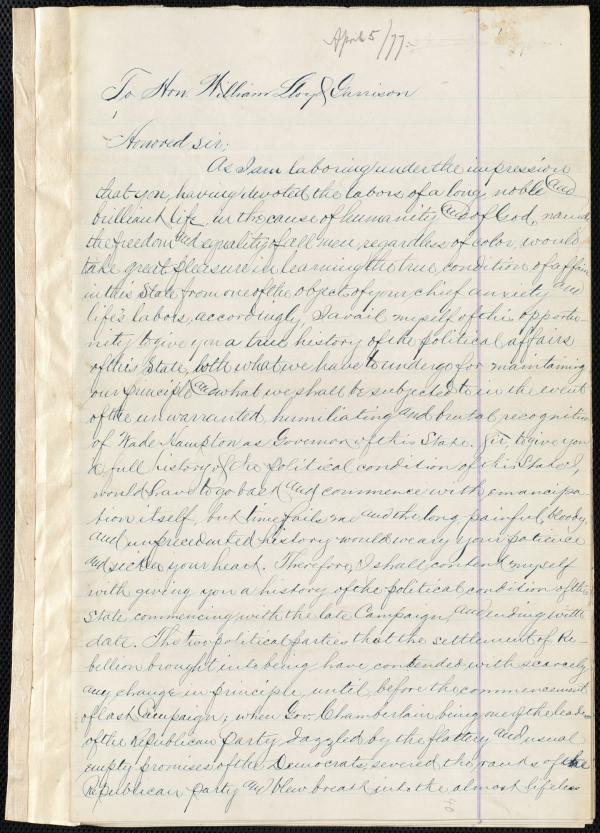 April 5/77.
To Hon. William Lloyd Garrison
Honored sir;
As I am laboring under the impression
that you, having devoted the labors of a long, noble and
brilliant life, in the cause of humanity and of God, namely
the freedom and equality of all men, regardless of color, would
take great pleasure in learning the true condition of affairs
in this State from one of the objects of your chief anxiety and
life's labors, accordingly, I avail myself of this opportu-
nity to give you a true history of the political affairs
of this State, both what we have to undergo for maintaining
our principle and what we shall be subjected to in the event
of the unwarranted, humiliating and brutal recognition
of Wade Hampton as Governor of this State. Sir, to give you
a full history of the political condition of this State I,
would have to go back and commence with emancipa-
tion itself, but time fails me and the long, painful, bloody,
and unprecedented history would weary your patience
and sicken your heart. Therefore, I shall content myself
with giving you a history of the political condition of the
State commencing with the late Campaign, and ending with
date. The two political parties that the settlement of Re-
bellion brought into being have contended with scarcely
any change in principle, until, before the commencement
of last Campaign; when Gov. Chamberlain being one of the leaders
of the Republican Party dazzled by the flattery and usual
empty promises of the Democrats, severed the ranks of the
Republican party and blew breath into the almost lifeless
40